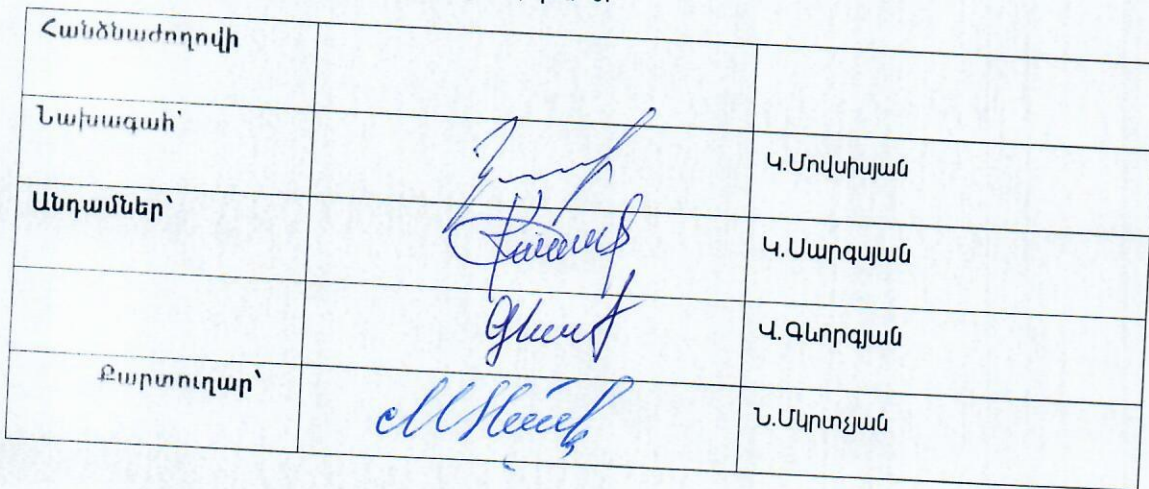 Հանձնաժողովի
Նախագահ՝ Կ.Մովսիսյան
Անդամներ՝ Կ.Սարգսյան
Վ.Գևորգյան
Քարտուղար՝ Ն.Մկրտչյան